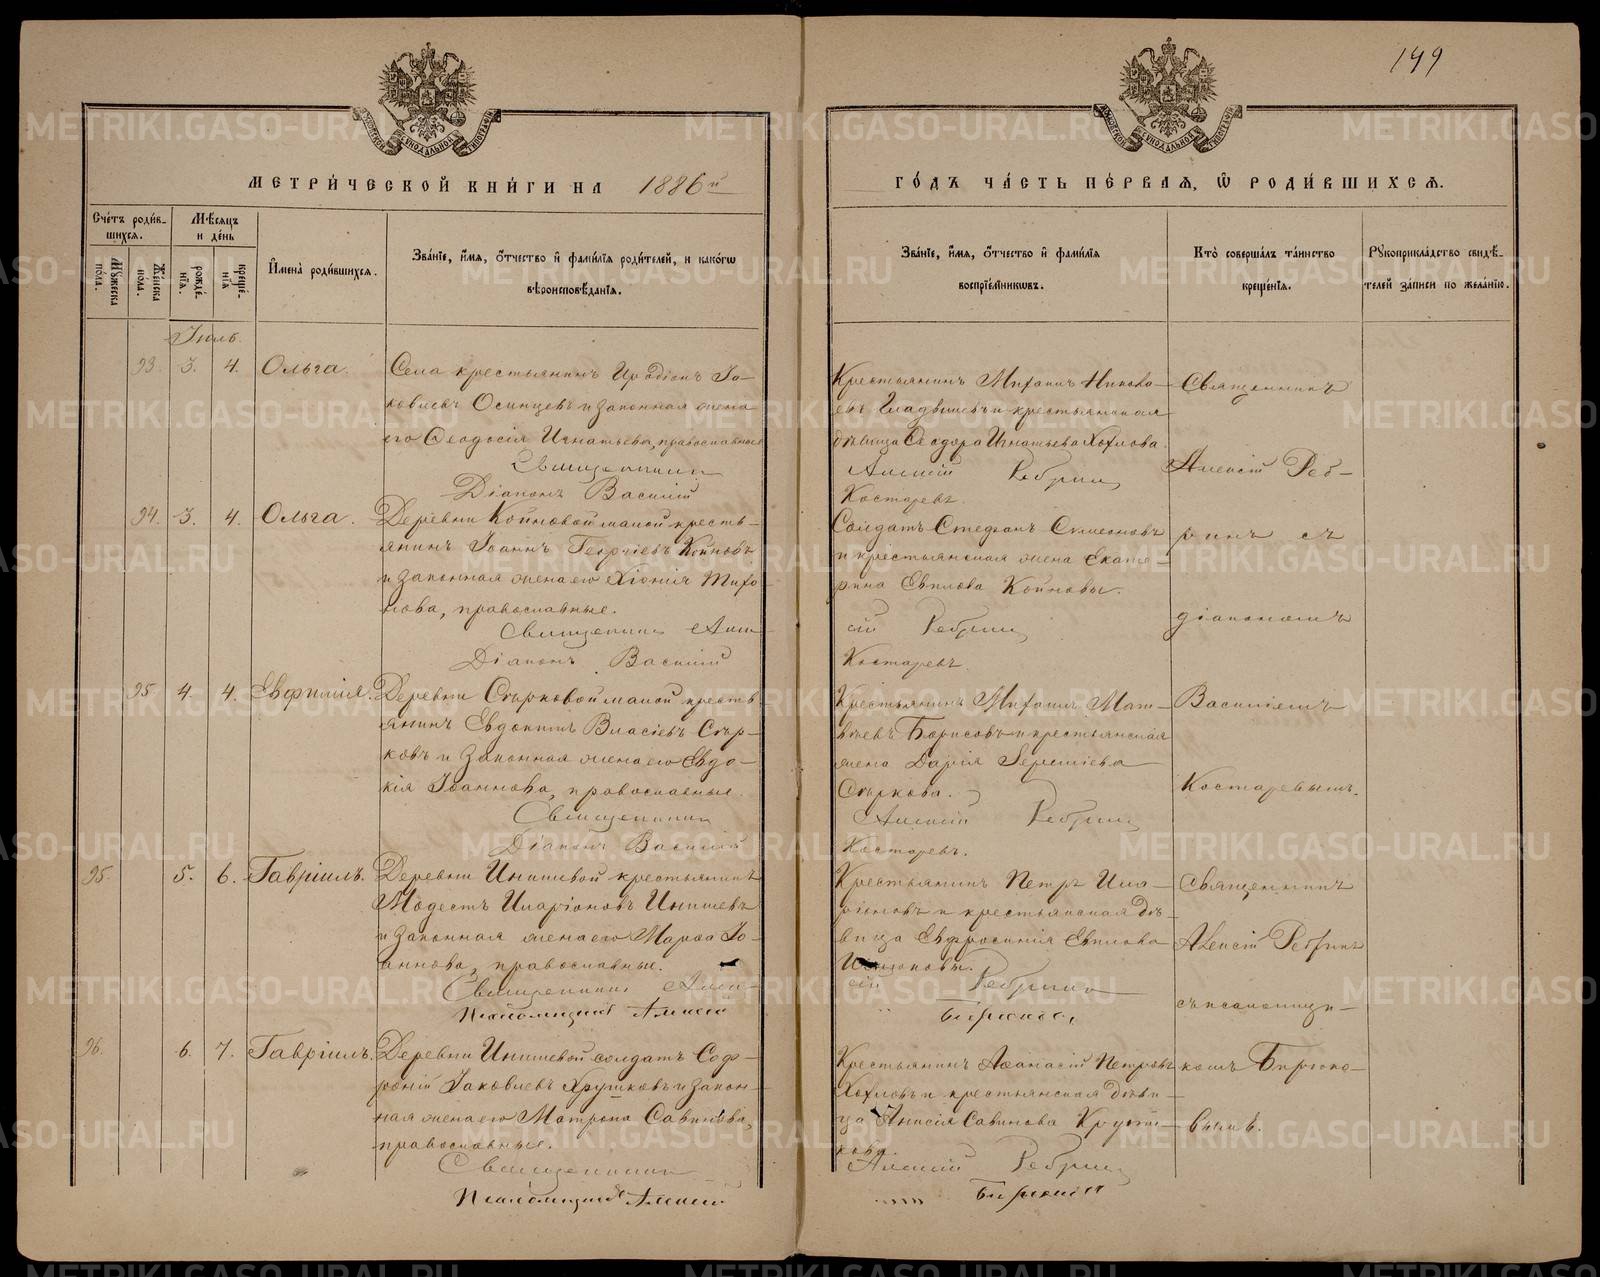 149
МЕТРИЧЕСКОЙ КНИГИ НА 1886й
ГОДЪ ЧАСТЬ ПЕРВАЯ, Ѡ РОДИВШИХСЯ.
Счетъ родившихся.
Мужеска пола.
Женска пола.
Мѣсяцъ и день
рожденія.
крещенія
Имена родившихся.
Званіе, имя, отчество и фамилія родителей, и какогѡ
вѣроисповѣданія.
Званіе, имя, отчество и фамилія
воспріемникѡвъ.
Кто совершалъ таинство
крещенія.
Рукоприкладство свидѣтелей записи по желанію.
Іюль.
93. 3. 4. Ольга.
Села крестьянинъ Иродіонъ Іаковлевъ
Осинцевъ и законная жена
его Ѳеодосія Игнатьева, православные
Священникъ
Діаконъ Василій
Крестьянинъ Михаилъ Николаевъ
Гладышевъ и крестьянская
дѣвица Ѳеодора Игнатьева Хохлова.
Алексій Ребринъ
Костаревъ.
94. 3. 4. Ольга.
Деревни Койновой малой крестьянинъ
Іоаннъ Георгіевъ Койновъ
и законная жена его Хіонія Тихонова,
православные.
Священникъ Алек-
Діаконъ Василій
Солдатъ Стефанъ Симеоновъ
и крестьянская жена Екатерина
Евплова Койновы.
сій Ребринъ
Костаревъ.
95 4. 4. Евфимія.
Деревни Сѣрковой малой крестьянинъ
Евдокимъ Власіевъ Сѣрковъ
и законная жена его Евдокія
Іоаннова, православные.
Священникъ
Діаконъ Василій
Крестьянинъ Михаилъ Матвѣевъ
Борисовъ и крестьянская
жена Дарія Іереміева
Сѣркова.
Алексій Ребринъ
Костаревъ.
Священникъ
Алексій Реб-
ринъ съ
діакономъ
Василіемъ
Костаревымъ.
95. 5. 6. Гавріилъ.
Деревни Инишевой крестьянинъ
Модестъ Иларіоновъ Инишевъ
и законная жена его Марѳа Іоаннова,
православные.
Священникъ Алек-
Псаломщикъ Алексій
Крестьянинъ Петръ Иларіоновъ
и крестьянская дѣвица
Евфросинія Евплова
сій Ребринъ
96. 6. 7. Гавріилъ.
Деревни Инишевой солдатъ Софроній
Іаковлевъ Хрушковъ и законная
жена его Матрона Савинова,
православные.
Священникъ
Псаломщикъ Алексій
Крестьянинъ Аѳанасій Петровъ
Хохловъ и крестьянская дѣвица
Анисія Савинова
Алексій Ребринъ
Священникъ
Алексій Ребринъ
съ псаломщи-
комъ Бирюко-
вымъ.
METRIKI.GASO-URAL.RU